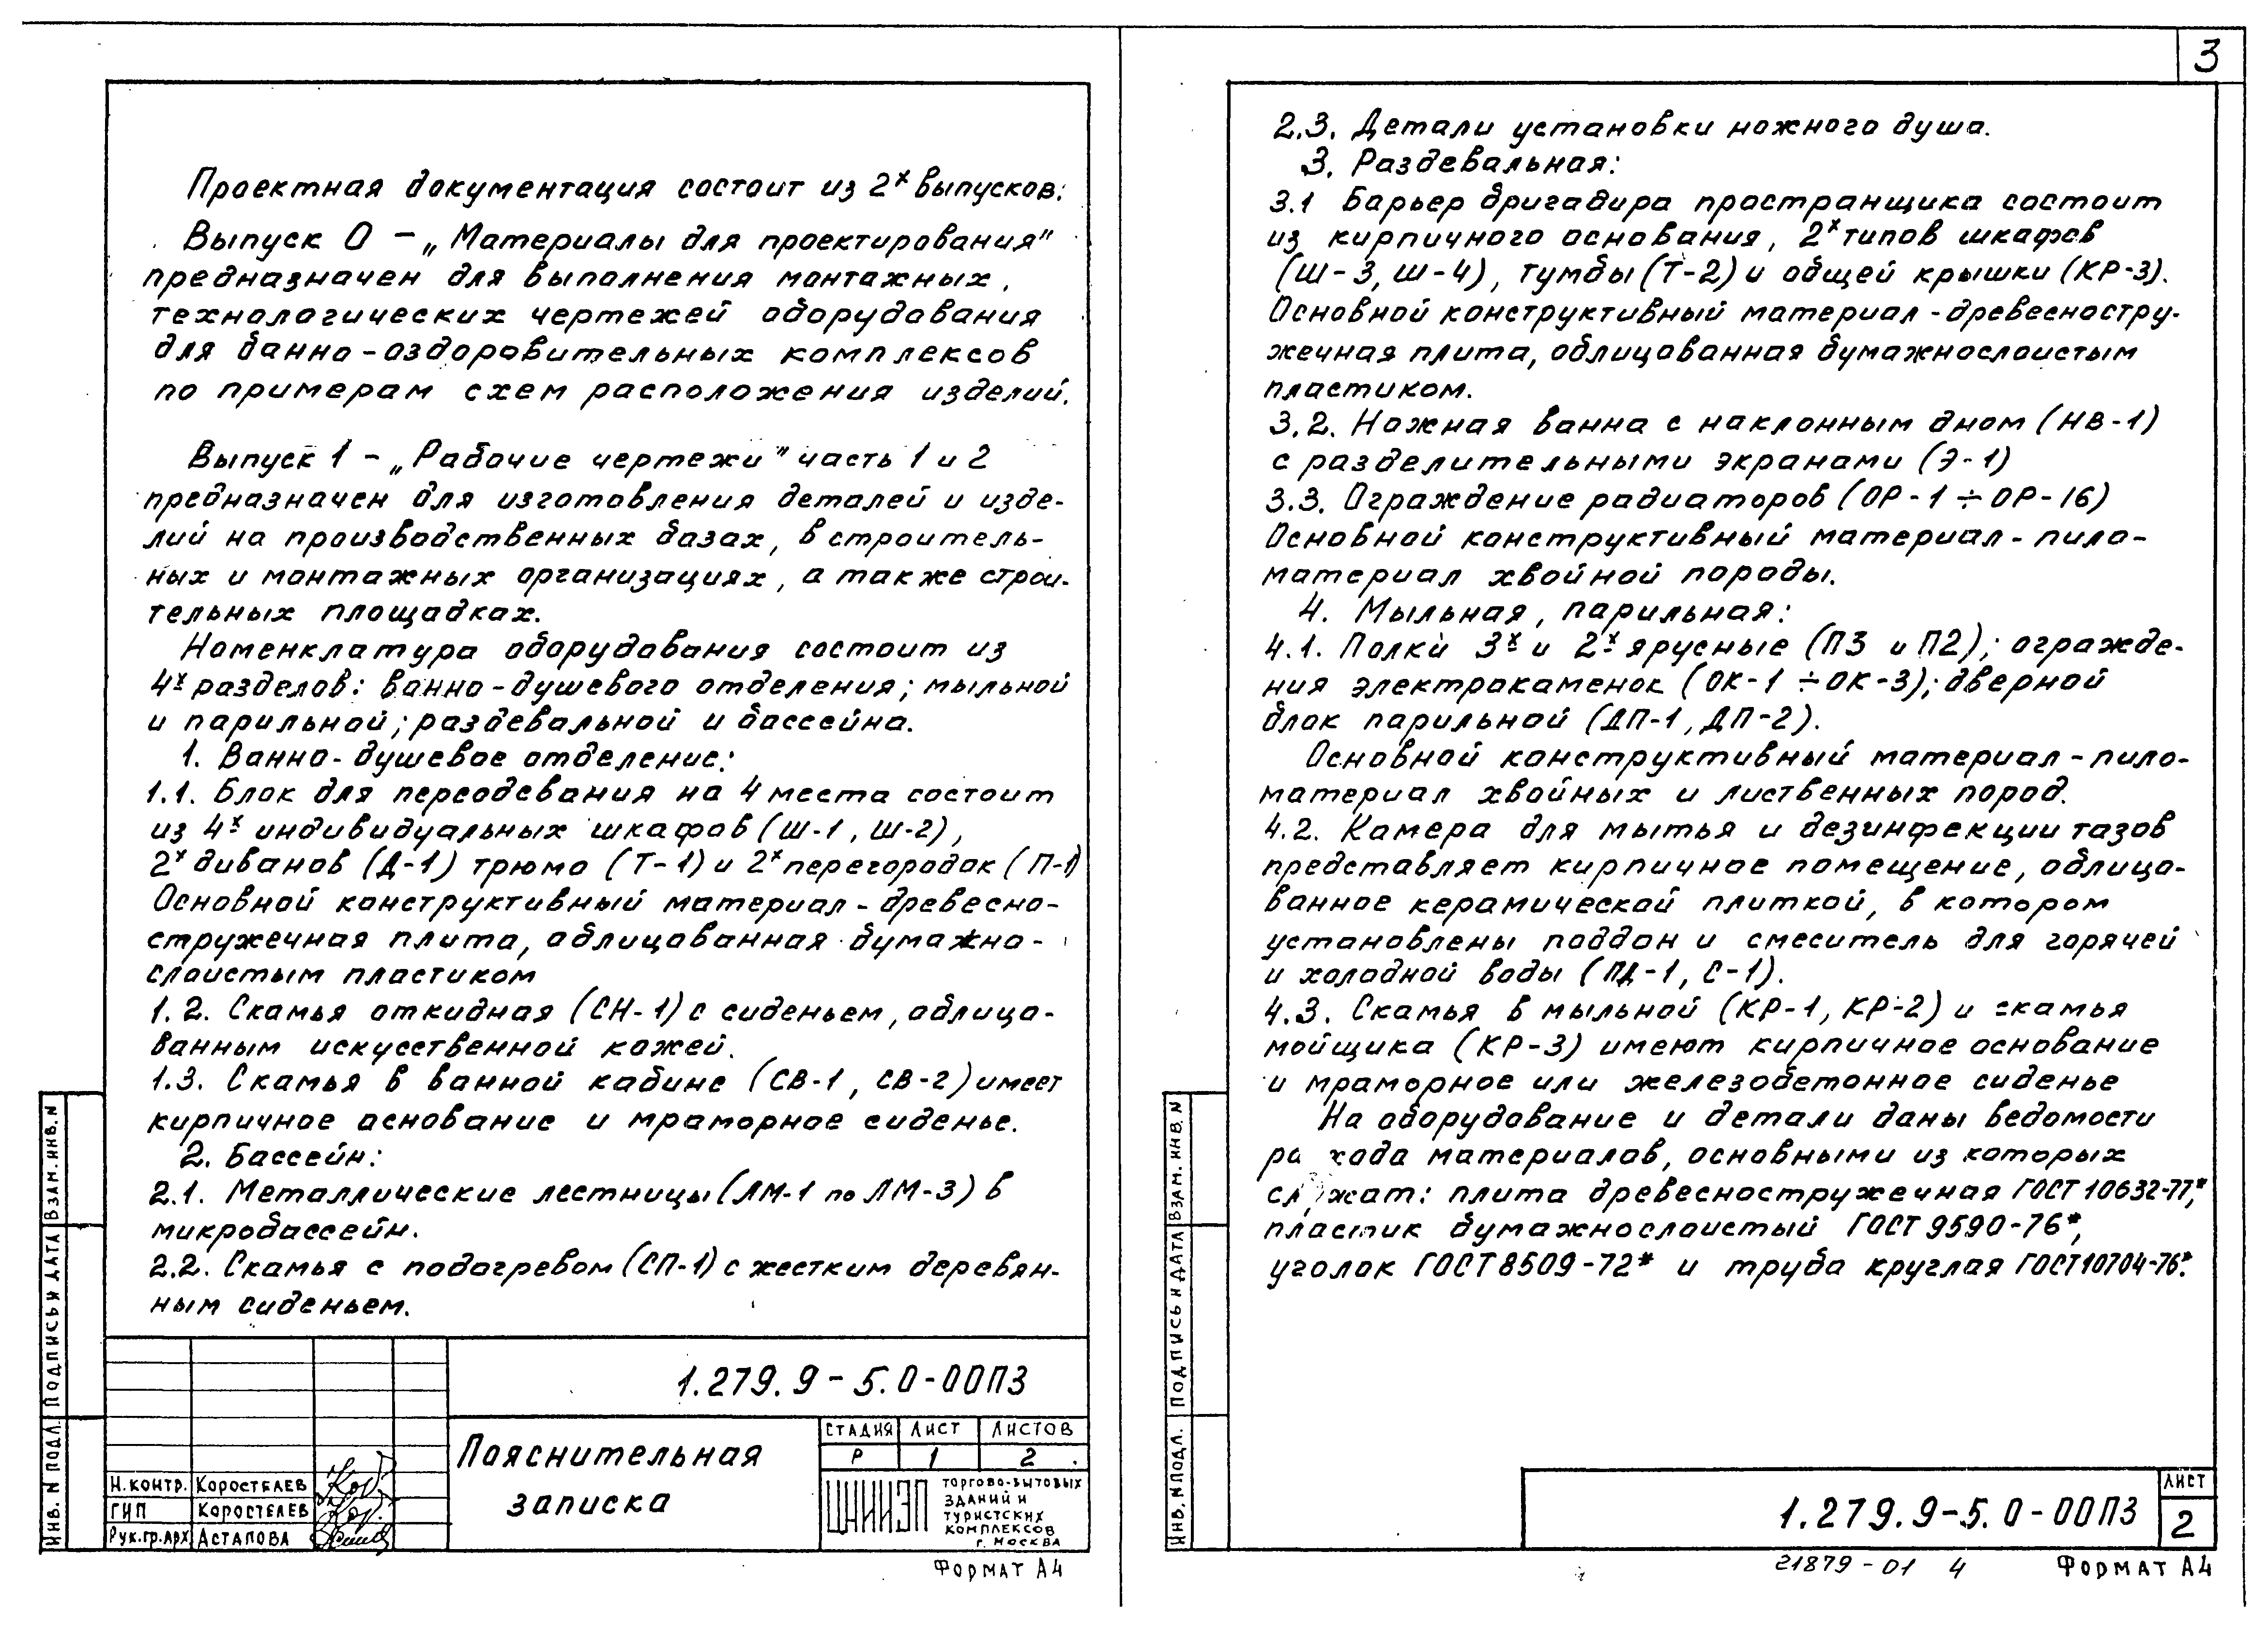 Проектная документация состоит из 2х выпусков:
Выпуск 0 – „Материалы для проектирования"
предназначен для выполнения монтажных,
технологических чертежей оборудования
для банно-оздоровительных комплексов
по примерам схем расположения изделий.
Выпуск 1 – „Рабочие чертежи" часть 1 и 2
предназначен для изготовления деталей и изде-
лий на производственных базах, в строитель-
ных и монтажных организациях, а также строи-
тельных площадках.
Номенклатура оборудования состоит из
4х разделов: ванно-душевого отделения; мыльной
и парильной; раздевальной и бассейна.
1. Ванно-душевое отделение:
1.1. Блок для переодевания на 4 места состоит
из 4х индивидуальных шкафов (Ш-1, Ш-2),
2х диванов (Д-1) трюмо (Т-1) и 2х перегородок (П-1)
Основной конструктивный материал - древесно-
стружечная плита, облицованная бумажно-
слоистым пластиком
1.2. Скамья откидная (СН-1) с сиденьем, облицо-
ванным искусственной кожей.
1.3. Скамья в ванной кабине (СВ-1, СВ-2) имеет
кирпичное основание и мраморное сиденье.
2. Бассейн:
2.1. Металлические лестницы (ЛМ-1 по ЛМ-3) в
микробассейн.
2.2. Скамья с подогревом (СП-1) с жестким деревян-
ным сиденьем.
1.279.9-5.0-00ПЗ
Пояснительная
записка
СТАДИЯ ЛИСТ ЛИСТОВ
Р 1 2
ЦНИИЭП
ТОРГОВО-БЫТОВЫХ
ЗДАНИЙ И
ТУРИСТСКИХ
КОМПЛЕКСОВ
Г. МОСКВА
Н.КОНТР. КОРОСТЕЛЕВ
ГИП КОРОСТЕЛЕВ
РУК.ГР.АРХ АСТАПОВА
ИНВ. N ПОДЛ. ПОДПИСЬ И ДАТА ВЗАМ. ИНВ. N
ФОРМАТ А4
3
2.3. Детали установки ножного душа.
3. Раздевальная:
3.1 Барьер бригадира пространщика состоит
из кирпичного основания, 2х типов шкафов
(Ш-3, Ш-4), тумбы (Т-2) и общей крышки (КР-3).
Основной конструктивный материал - древесностру-
жечная плита, облицованная бумажнослоистым
пластиком.
3.2. Ножная ванна с наклонным дном (НВ-1)
с разделительными экранами (Э-1)
3.3. Ограждение радиаторов (ОР-1 ÷ ОР-16)
Основной конструктивный материал - пило-
материал хвойной породы.
4. Мыльная, парильная:
4.1. Полки 3х и 2х ярусные (П3 и П2); огражде-
ния электрокаменок (ОК-1 ÷ ОК-3); дверной
блок парильной (ДП-1, ДП-2).
Основной конструктивный материал - пило-
материал хвойных и лиственных пород.
4.2. Камера для мытья и дезинфекции тазов
представляет кирпичное помещение, облицо-
ванное керамической плиткой, в котором
установлены поддон и смеситель для горячей
и холодной воды (ПД-1, С-1).
4.3. Скамья в мыльной (КР-1, КР-2) и скамья
мойщика (КР-3) имеют кирпичное основание
и мраморное или железобетонное сиденье
На оборудование и детали даны ведомости
расхода материалов, основными из которых
служат: плита древесностружечная ГОСТ 10632-77*,
пластик бумажнослоистый ГОСТ 9590-76*,
уголок ГОСТ 8509-72* и труба круглая ГОСТ 10704-76*.
ИНВ. N ПОДЛ. ПОДПИСЬ И ДАТА ВЗАМ. ИНВ. N
1.279.9-5.0-00ПЗ
ЛИСТ
2
21879-01 4
ФОРМАТ А4